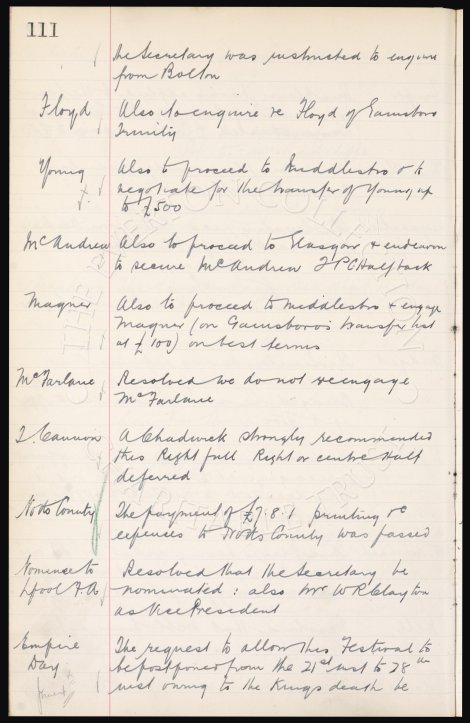 111
the Secretary was instructed to enquire
from Bolton
Floyd Also to enquire re Floyd of Gainsboro
Trinity
Young Also to proceed to Middlesbro & to
negotiate for the transfer of Young up
to £500
McAndrew Also to proceed to Glasgow & endeavour
to secure McAndrew Half back
Magner Also to proceed to Middlesbro & engage
Magner (on Gainsboro's transfer list
at £100) on best terms
McFarlane Resolved we do not reengage
McFarlane
J. Cannon A Chadwick strongly recommended
this Right full Right or centre Half
deferred
Notts County The payment of £7.8.1 printing &c
expenses to Notts County was passed
Nominee to Resolved that the Secretary be
Lpool F.A. nominated: also Mr W R Clayton
as Vice President
Empire The request to allow this Festival to
Day be postponed from the 21st inst to 28th
inst owing to the Kings death be